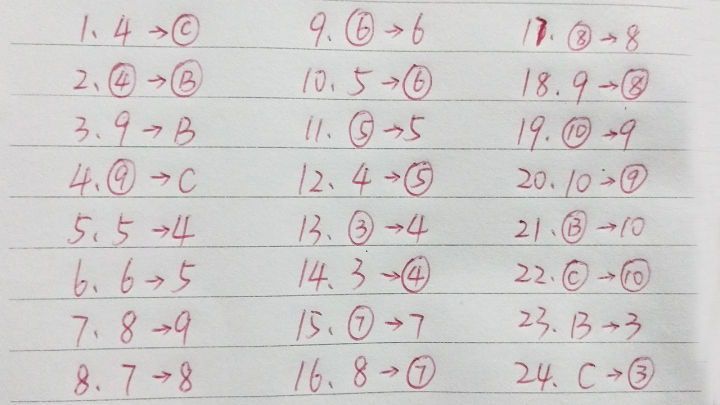 1. 4→Ⓒ
2. ④→Ⓑ
3. 9→B
4. ⑨→C
5. 5→4
6. 6→5
7. 8→9
8. 7→8
9. ⑥→6
10. 5→⑥
11. ⑤→5
12. 4→⑤
13. ③→4
14. 3→④
15. ⑦→7
16. 8→⑦
17. ⑧→8
18. 9→⑧
19. ⑩→9
20. 10→⑨
21. Ⓑ→10
22. Ⓒ→⑩
23. B→3
24. C→③